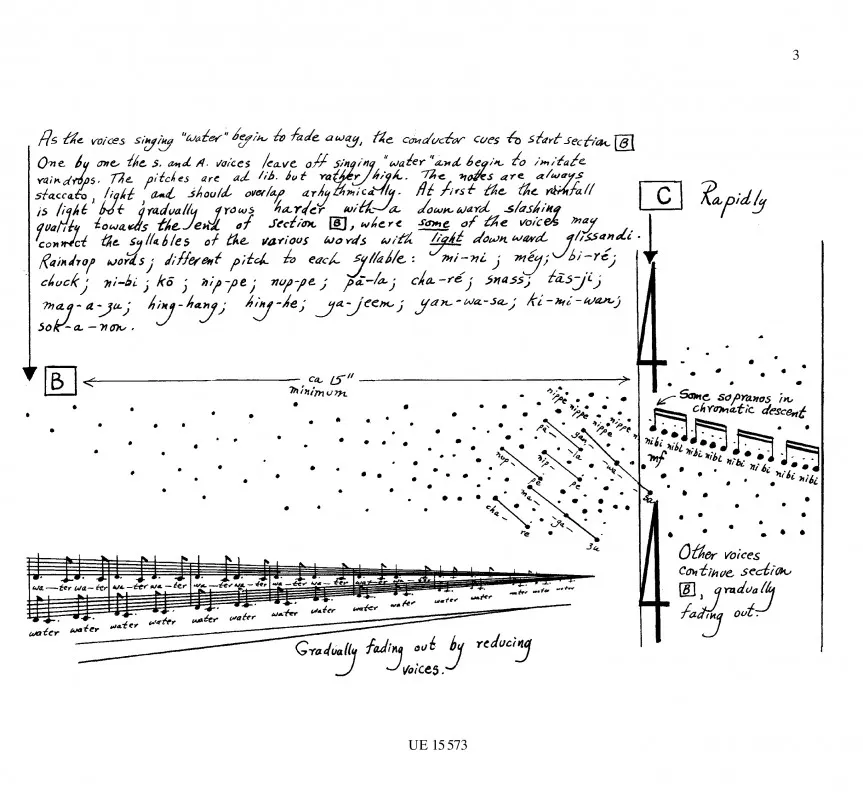 3
As the voices singing "water" begin to fade away, the conductor cues to start section B
One by one the s. and A. voices leave off singing "water" and begin to imitate
raindrops. The pitches are ad lib. but rather high. The notes are always
staccato, light and should overlap arhythmically. At first the the rainfall
is light but gradually grows harder with a downward slashing
quality towards the end of section B, where some of the voices may
connect the syllables of the various words with light downward glissandi.
Raindrop words; different pitch to each syllable: mi-ni; méy; bi-ré;
chuck; ni-bi; kō; nip-pe; nup-pe; pā-la; cha-ré; snass; tās-ji;
mag-a-zu; hing-hang; hing-he; ya-jeem; yan-wa-sa; ki-mi-wan;
sok-a-non.
C Rapidly
B
ca 15"
minimum
nippe nippe nippe nippe nippe
pā- -la
yan- -wa- -sa
nup- pe
nip- pe
ma- -ga- zu
cha- re
Some sopranos in
chromatic descent
mf
nibi nibi nibi nibi nibi nibi nibi nibi
wa-ter wa-ter wa-ter wa-ter wa-ter wa-ter wa-ter wa-ter
water water water water water water water water water water water water water water
Gradually fading out by reducing
voices.
Other voices
continue section
B, gradually
fading out.
UE 15573